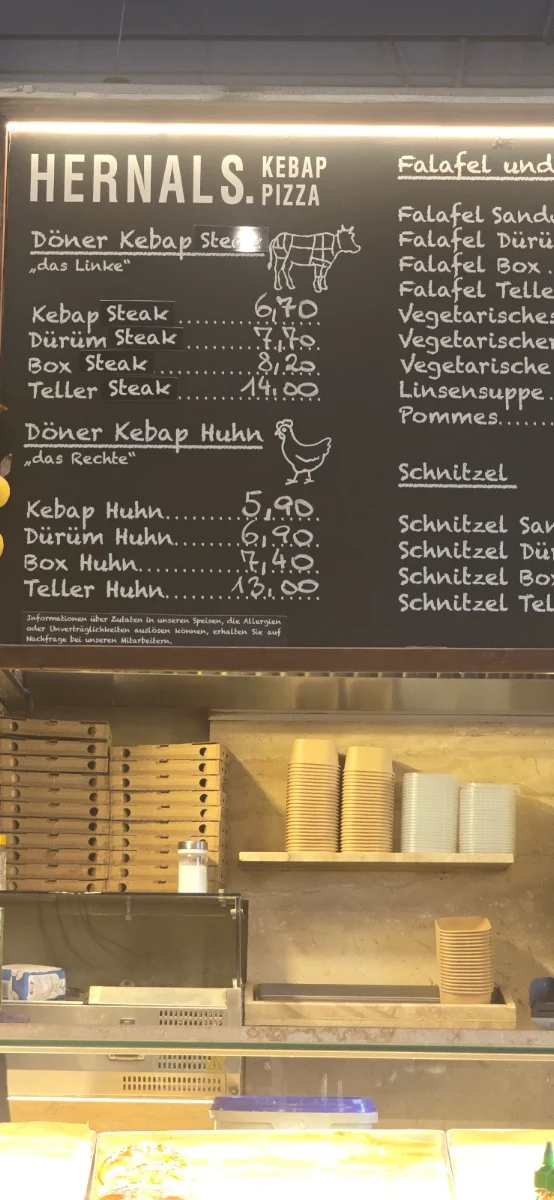 HERNALS. KEBAP PIZZA
Döner Kebap Steak
„das Linke“
Kebap Steak .......... 6,70
Dürüm Steak .......... 7,70
Box Steak .......... 8,20
Teller Steak .......... 14,00
Döner Kebap Huhn
„das Rechte“
Kebap Huhn .......... 5,90
Dürüm Huhn .......... 6,90
Box Huhn .......... 7,40
Teller Huhn .......... 13,00
Informationen über Zutaten in unseren Speisen, die Allergien
oder Unverträglichkeiten auslösen können, erhalten Sie auf
Nachfrage bei unseren Mitarbeitern.
Falafel und
Falafel Sandw
Falafel Dürü
Falafel Box .
Falafel Telle
Vegetarisches
Vegetarischer
Vegetarische
Linsensuppe .
Pommes.......
Schnitzel
Schnitzel San
Schnitzel Dür
Schnitzel Box
Schnitzel Tel